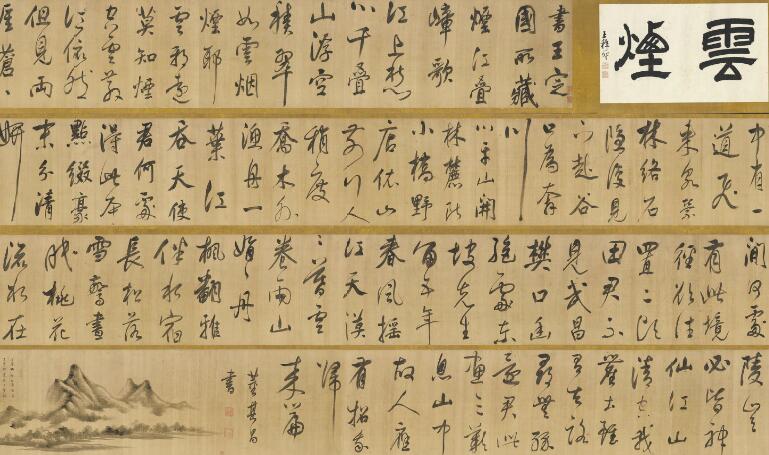 雲煙
書王定
國所藏
煙江疊
嶂歌
江上愁
心千疊
山浮空
積翠
如雲烟
煙耶
雲耶遠
莫知煙
空雲散
山依然
但見兩
崖蒼、
中有一
道飛
來泉縈
林絡石
隱復見
下赴谷
口為奔
川
川平山開
林麓斷
小橋野
店依山
前行人
稍度
喬木外
漁舟一
葉江
吞天使
君何處
得此本
點綴毫
末分清
妍
間何處
有此境
徑欲往
置二頃
田君不
見武昌
樊口幽
絕處東
坡先生
留五年
春風搖
江天漠
、暮雲
卷雨山
娟、丹
楓翻鴉
伴水宿
長松落
雪驚晝
眠桃花
流水在
陵豈
必皆神
仙江山
清空我
塵土雖
有去路
尋無緣
還君此
畫三歎
息山中
故人應
有招我
歸
來篇
董其昌
書